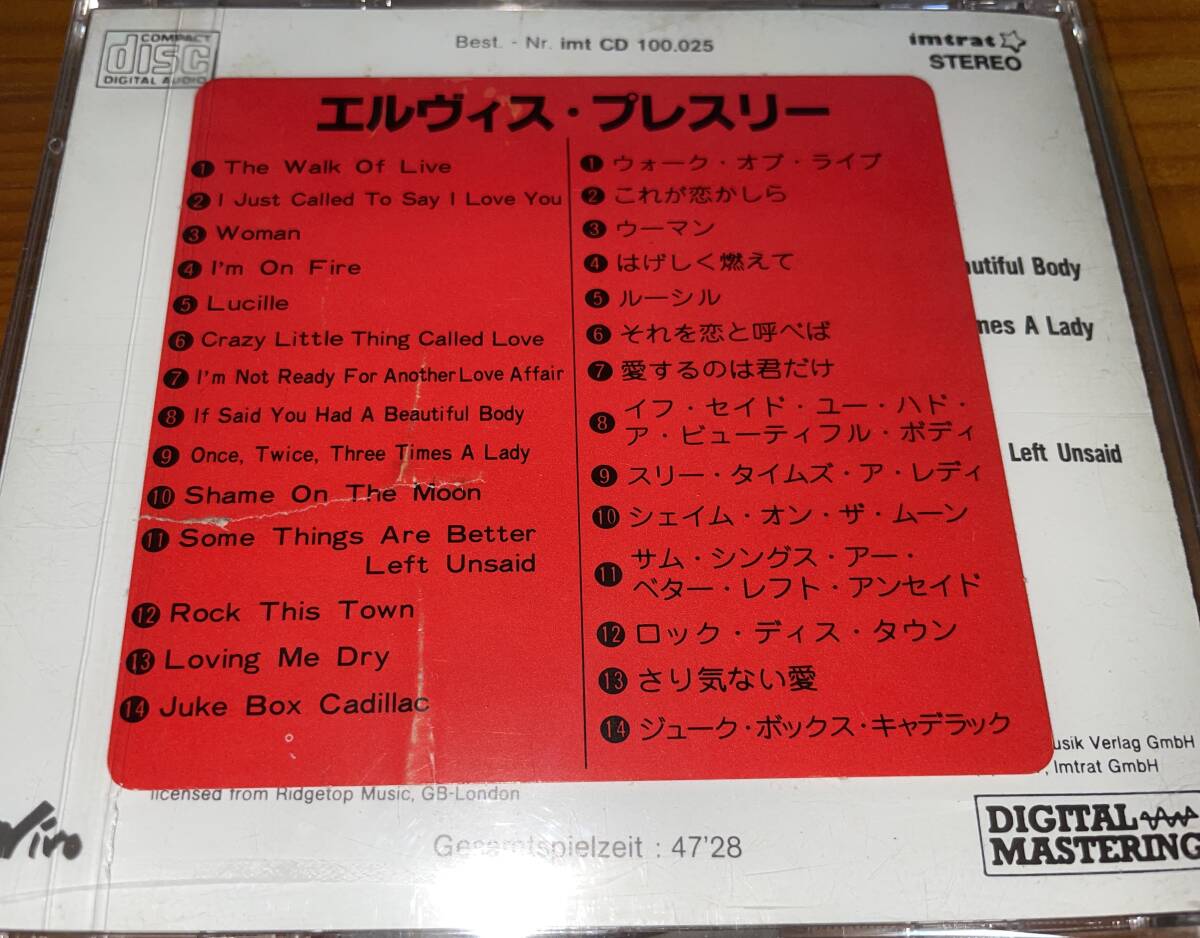 COMPACT
disc
DIGITAL AUDIO
Best. - Nr. imt CD 100.025
imtrat
STEREO
エルヴィス・プレスリー
1 The Walk Of Live
2 I Just Called To Say I Love You
3 Woman
4 I'm On Fire
5 Lucille
6 Crazy Little Thing Called Love
7 I'm Not Ready For Another Love Affair
8 If Said You Had A Beautiful Body
9 Once, Twice, Three Times A Lady
10 Shame On The Moon
11 Some Things Are Better
Left Unsaid
12 Rock This Town
13 Loving Me Dry
14 Juke Box Cadillac
1 ウォーク・オブ・ライブ
2 これが恋かしら
3 ウーマン
4 はげしく燃えて
5 ルーシル
6 それを恋と呼べば
7 愛するのは君だけ
8 イフ・セイド・ユー・ハド・
ア・ビューティフル・ボディ
9 スリー・タイムズ・ア・レディ
10 シェイム・オン・ザ・ムーン
11 サム・シングス・アー・
ベター・レフト・アンセイド
12 ロック・ディス・タウン
13 さり気ない愛
14 ジューク・ボックス・キャデラック
autiful Body
mes A Lady
Left Unsaid
usik Verlag GmbH
, Imtrat GmbH
licensed from Ridgetop Music, GB-London
Gesamtspielzeit : 47'28
DIGITAL
MASTERING